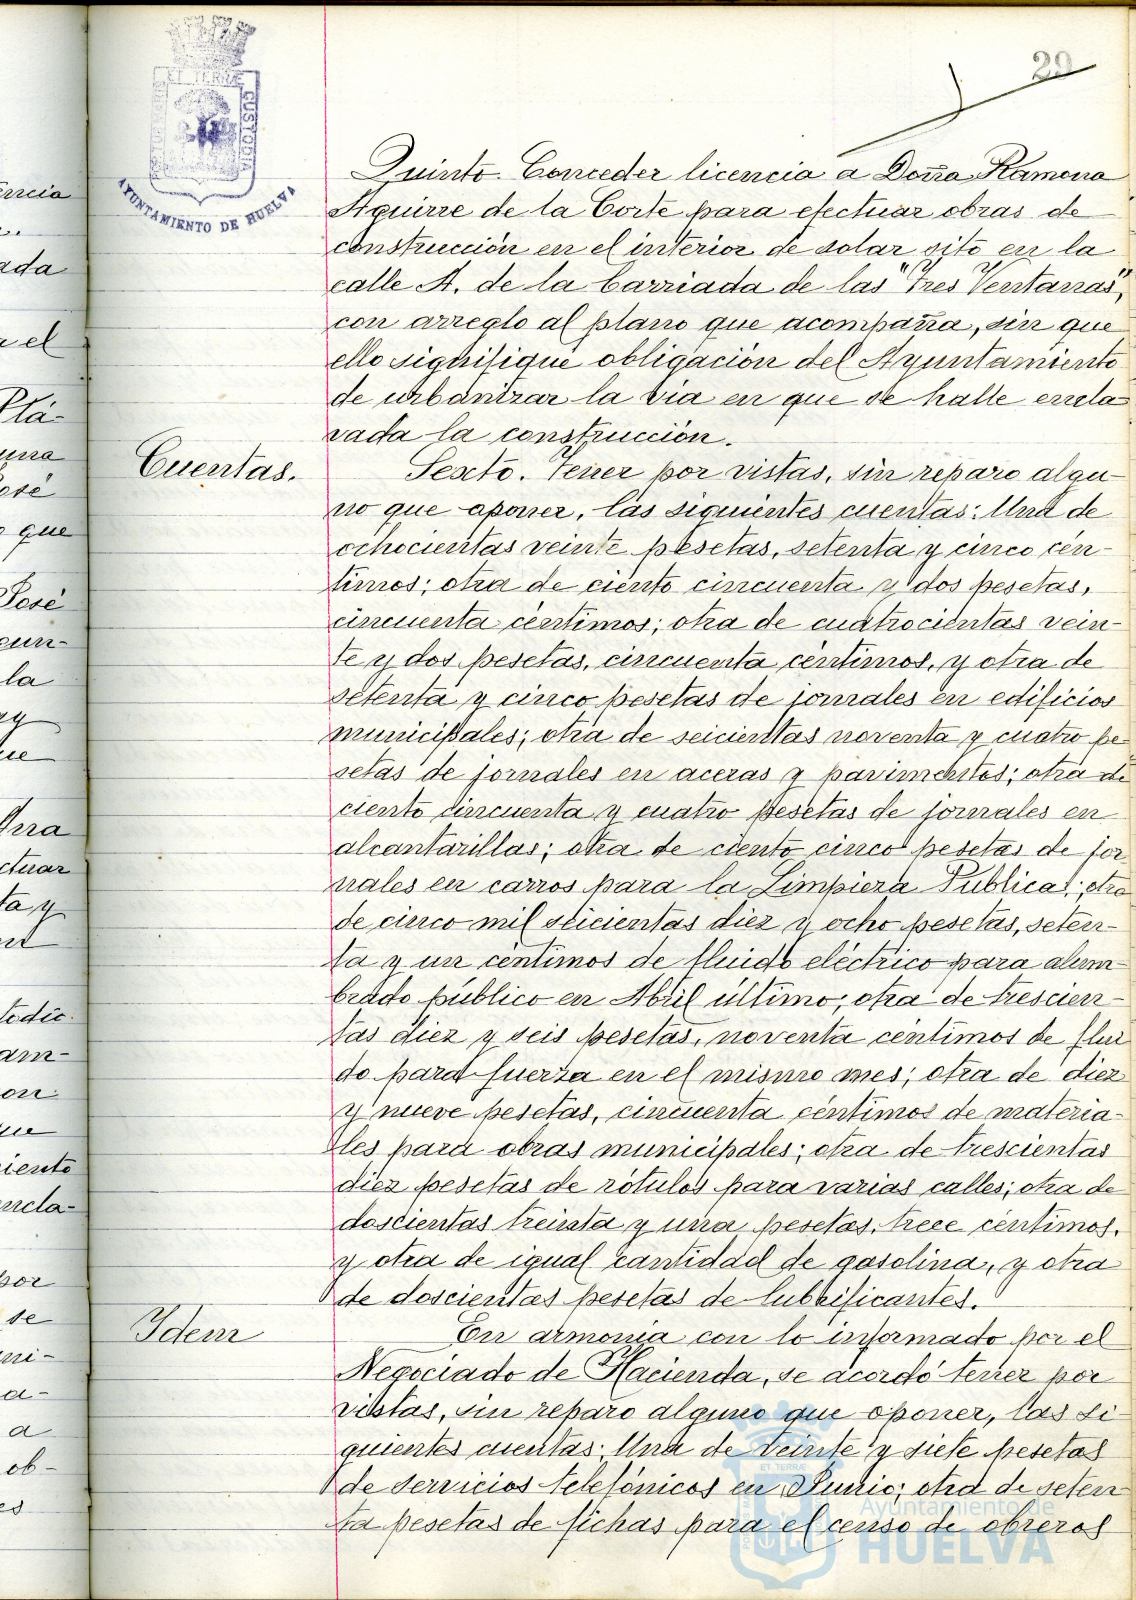 29
ET TERRÆ
CUSTODIA
AYUNTAMIENTO DE HUELVA
Quinto. Conceder licencia a Doña Ramona
Aguirre de la Corte para efectuar obras de
construcción en el interior de solar sito en la
calle A. de la barriada de las "Tres Ventanas",
con arreglo al plano que acompaña, sin que
ello signifique obligación del Ayuntamiento
de urbanizar la via en que se halle encla
vada la construcción.
Cuentas.
Sexto. Tener por vistas, sin reparo algu-
no que oponer, las siguientes cuentas: Una de
ochocientas veinte pesetas, setenta y cinco cén-
timos; otra de ciento cincuenta y dos pesetas,
cincuenta céntimos; otra de cuatrocientas vein-
te y dos pesetas, cincuenta céntimos, y otra de
setenta y cinco pesetas de jornales en edificios
municipales; otra de seicientas noventa y cuatro pe-
setas de jornales en aceras y pavimentos; otra de
ciento cincuenta y cuatro pesetas de jornales en
alcantarillas; otra de ciento cinco pesetas de jor
nales en carros para la Limpieza Pública; otra
de cinco mil seicientas diez y ocho pesetas, seten-
ta y un céntimos de fluido eléctrico para alum-
brado público en Abril último; otra de trescien-
tas diez y seis pesetas, noventa céntimos de flui
do para fuerza en el mismo mes; otra de diez
y nueve pesetas, cincuenta céntimos de materia-
les para obras municipales; otra de trescientas
diez pesetas de rótulos para varias calles; otra de
doscientas treinta y una pesetas, trece céntimos,
y otra de igual cantidad de gasolina, y otra
de doscientas pesetas de lubrificantes.
Idem
En armonia con lo informado por el
Negociado de Hacienda, se acordó tener por
vistas, sin reparo alguno que oponer, las si-
guientes cuentas: Una de veinte y siete pesetas
de servicios telefónicos en Junio; otra de seten
ta pesetas de fichas para el censo de obreros
Ayuntamiento de
HUELVA
encia
ada
a el
Pla-
una
José
o que
José
cun-
la
que
Ana
ctuar
ta y
am-
on
que
iento
encla-
por
se
ni-
a-
a
ob-
es